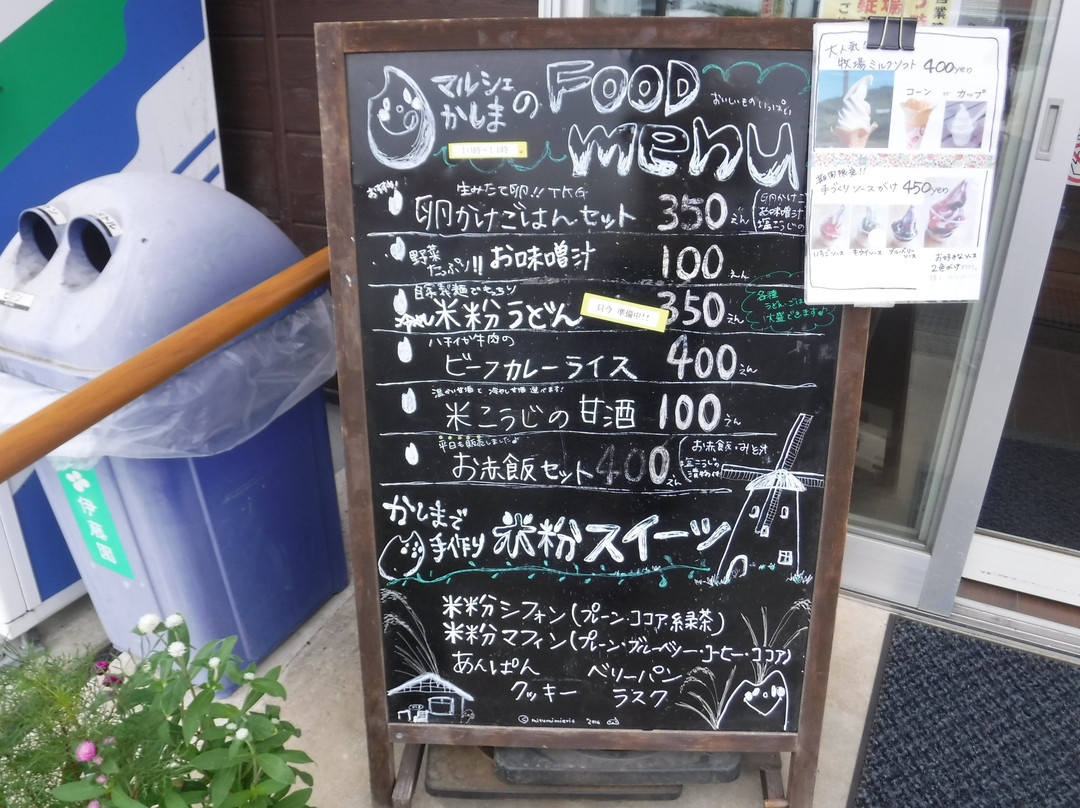 マルシェ
かしまの
FOOD
menu
おいしものいっぱい
おすすめ
生みたて卵!! TKG
卵かけごはんセット 350えん
卵かけご
お味噌汁
塩こうじの
野菜
たっぷり!! お味噌汁 100えん
自家製麺でもっちり
冷やし 米粉うどん 350えん
只今 準備中!!
各種
うどん・ごは
大盛できます
牛肉の
ビーフカレーライス 400えん
温かい甘酒と冷やし甘酒 選べます!
米こうじの甘酒 100えん
平日も販売しました♪
お赤飯セット 400えん
お赤飯・みそ汁
塩こうじの
漬物付
かしまで
手作り 米粉スイーツ
米粉シフォン(プレーン・ココア・緑茶)
米粉マフィン(プレーン・ブルーベリー・コーヒー・ココア)
あんぱん ベリーパン
クッキー ラスク
2016
大人気
牧場ミルクソフト 400yen
コーン or カップ
期間限定!!
手づくりソースがけ 450yen
いちごソース
キウイソース
ブルーベリー
ソース
お好きなソース
2色がけ
伊藤園